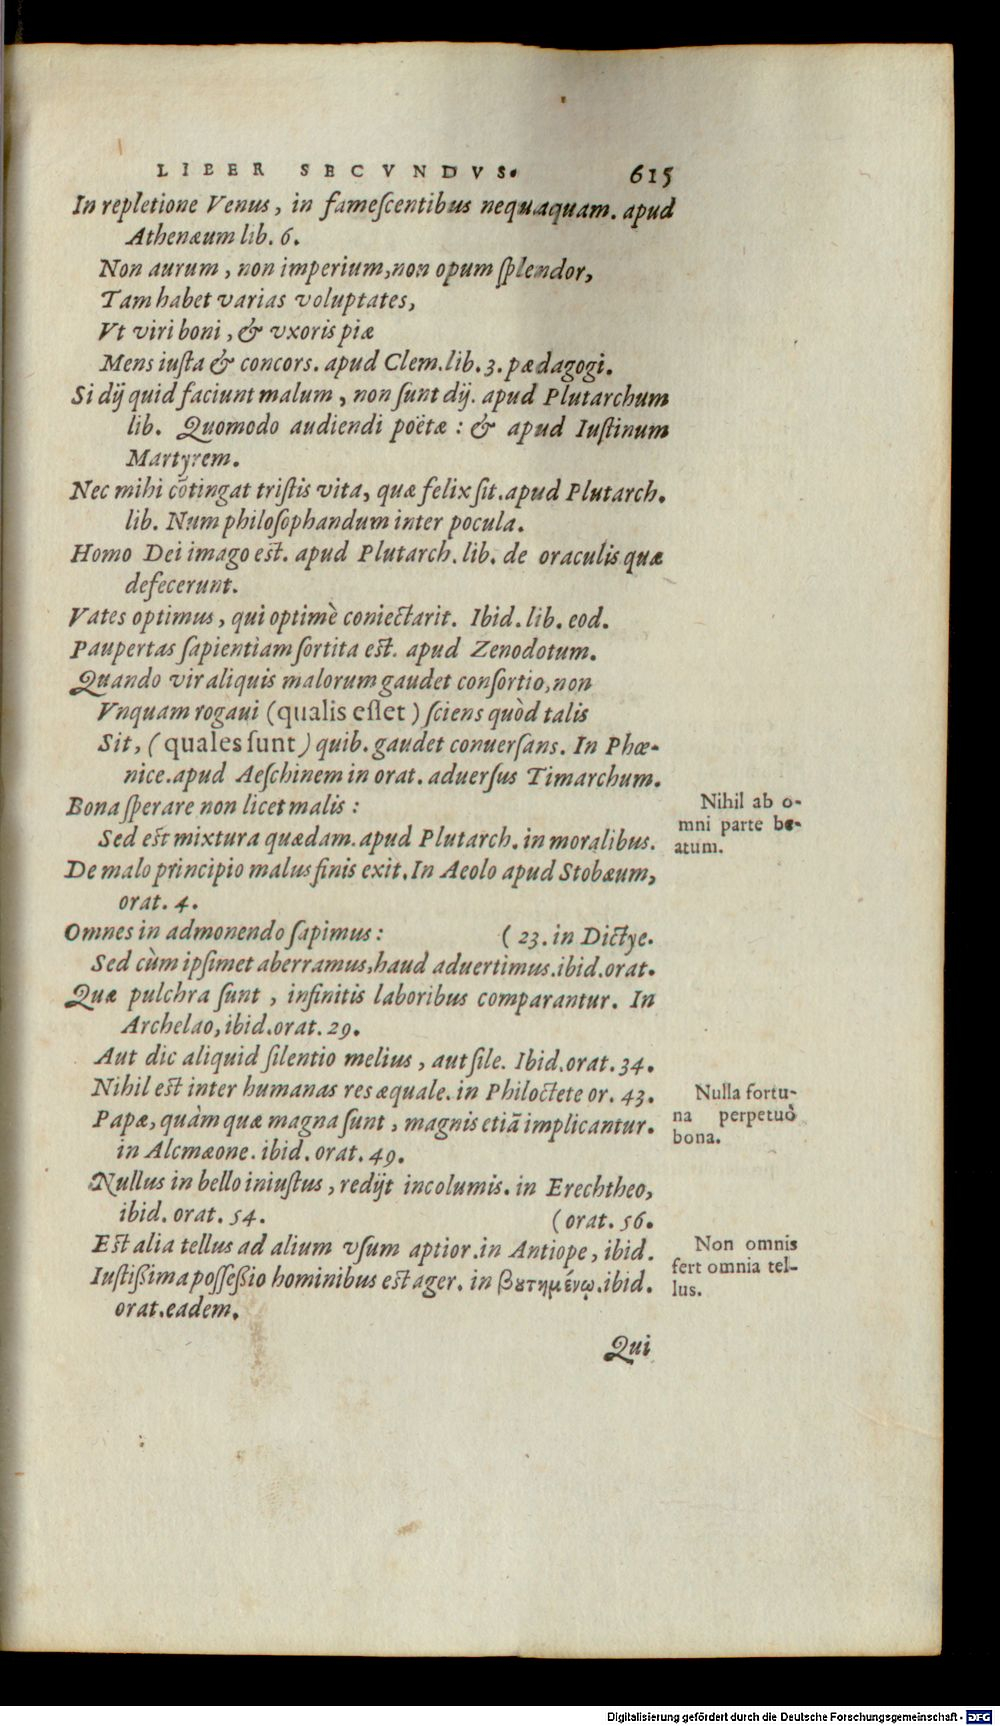 LIBER SECVNDVS. 615
In repletione Venus, in famescentibus nequaquam. apud
Athenæum lib. 6.
Non aurum, non imperium, non opum splendor,
Tam habet varias voluptates,
Vt viri boni, & vxoris piæ
Mens iusta & concors. apud Clem. lib. 3. pædagogi.
Si dij quid faciunt malum, non sunt dij. apud Plutarchum
lib. Quomodo audiendi poëtæ: & apud Iustinum
Martyrem.
Nec mihi cõtingat tristis vita, quæ felix sit. apud Plutarch.
lib. Num philosophandum inter pocula.
Homo Dei imago est. apud Plutarch. lib. de oraculis quæ
defecerunt.
Vates optimus, qui optimè coniectarit. Ibid. lib. eod.
Paupertas sapientiam sortita est. apud Zenodotum.
Quando vir aliquis malorum gaudet consortio, non
Vnquam rogaui (qualis esset) sciens quòd talis
Sit, (quales sunt) quib. gaudet conuersans. In Phœ-
nice. apud Aeschinem in orat. aduersus Timarchum.
Bona sperare non licet malis:
Sed est mixtura quædam. apud Plutarch. in moralibus.
Nihil ab o-
mni parte be-
atum.
De malo principio malus finis exit. In Aeolo apud Stobæum,
orat. 4.
Omnes in admonendo sapimus: (23. in Dictye.
Sed cùm ipsimet aberramus, haud aduertimus. ibid. orat.
Quæ pulchra sunt, infinitis laboribus comparantur. In
Archelao, ibid. orat. 29.
Aut dic aliquid silentio melius, aut sile. Ibid. orat. 34.
Nihil est inter humanas res æquale. in Philoctete or. 43.
Nulla fortu-
na perpetuò
bona.
Papæ, quàm quæ magna sunt, magnis etiã implicantur.
in Alcmæone. ibid. orat. 49.
Nullus in bello iniustus, redijt incolumis. in Erechtheo,
ibid. orat. 54. (orat. 56.
Est alia tellus ad alium vsum aptior. in Antiope, ibid.
Non omnis
fert omnia tel-
lus.
Iustißima posseßio hominibus est ager. in βουτημένῳ. ibid.
orat. eadem.
Qui
Digitalisierung gefördert durch die Deutsche Forschungsgemeinschaft - DFG